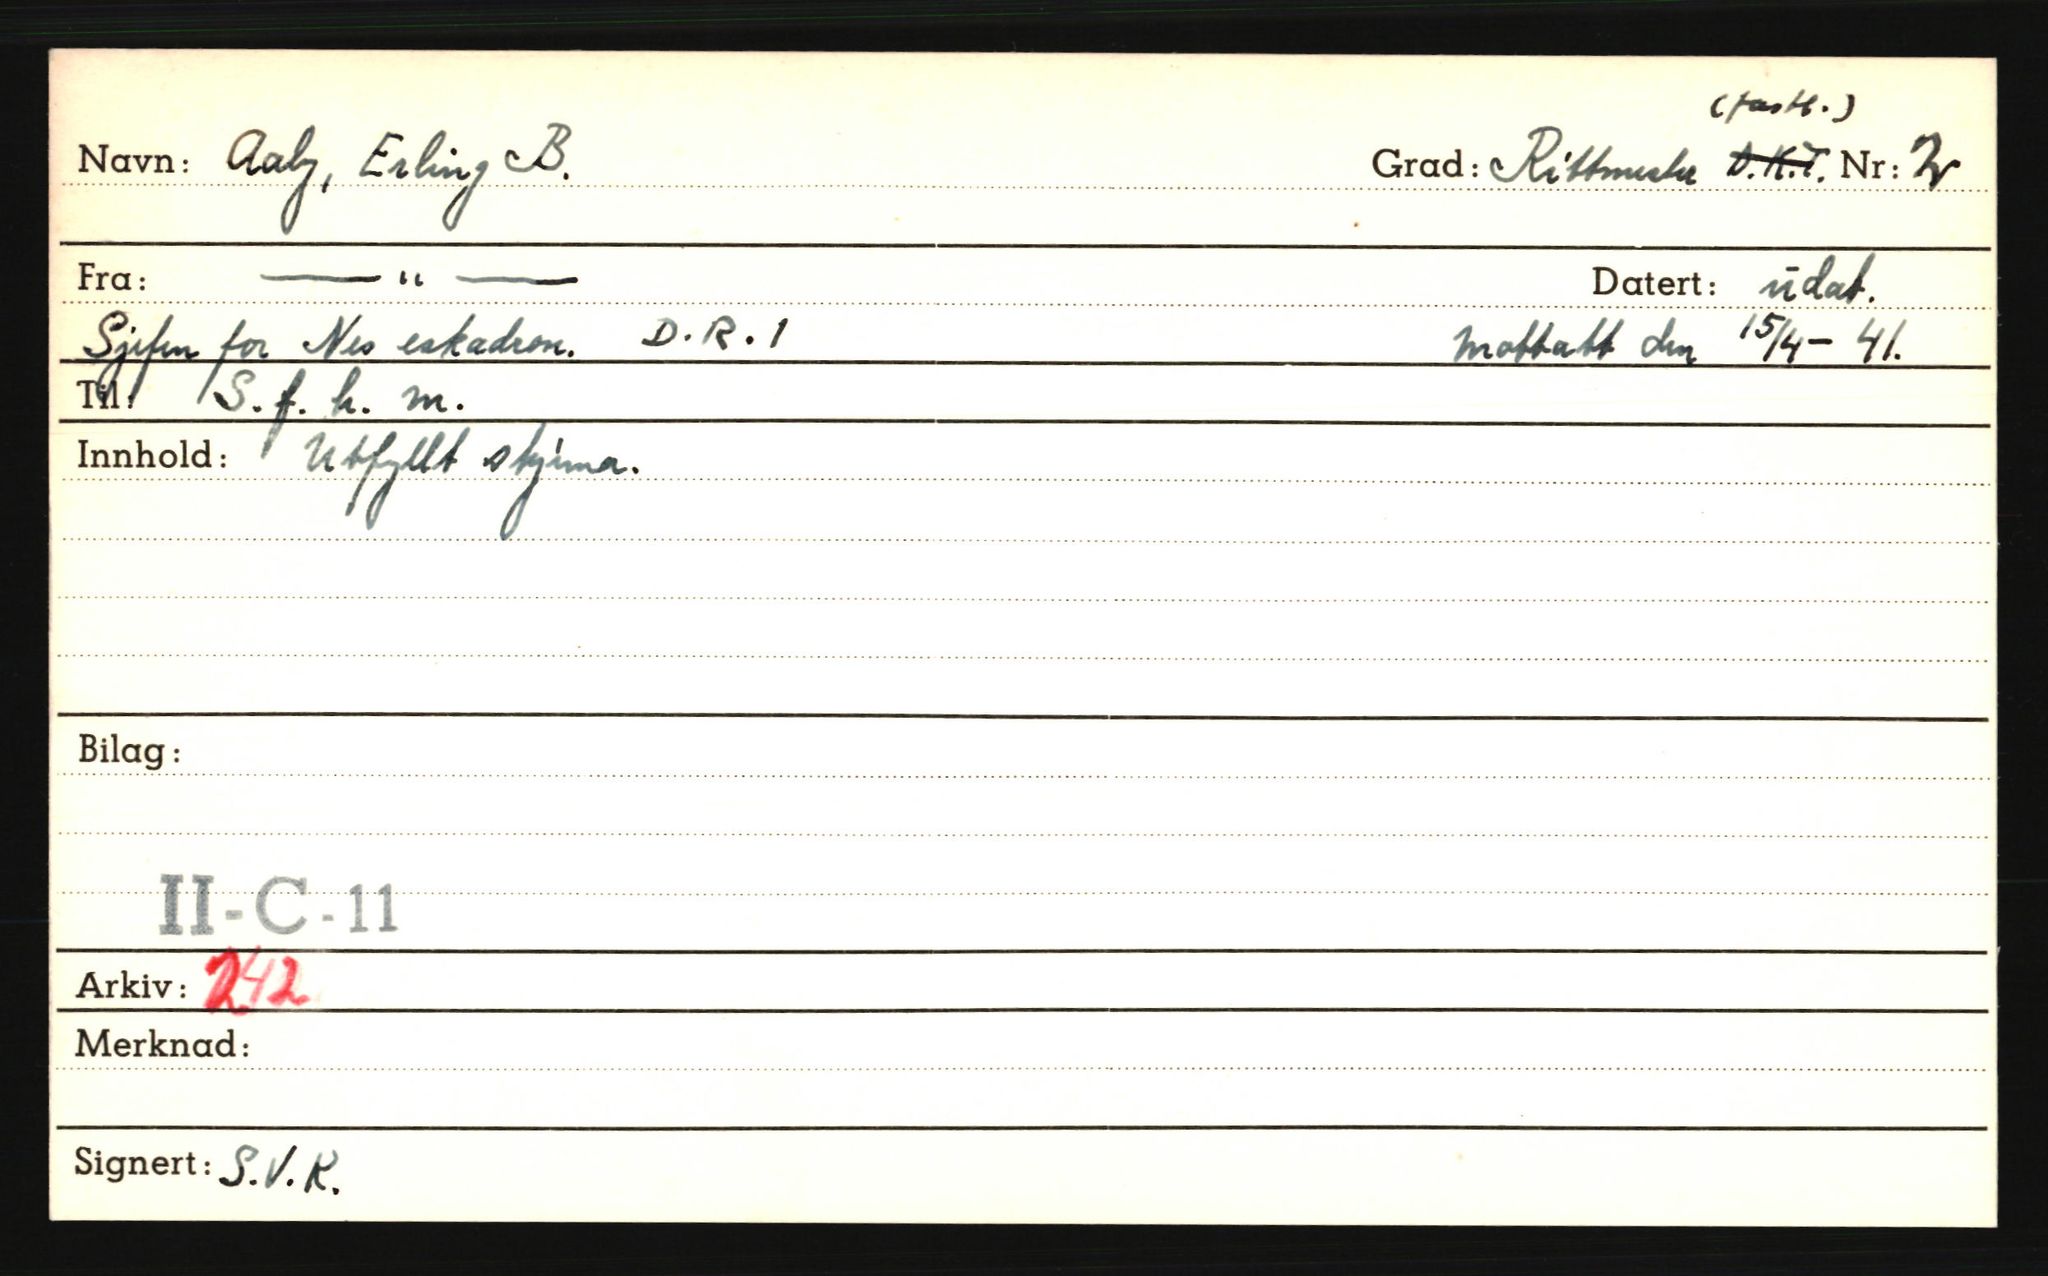 (fastl.)
Navn: Aaby, Erling B. Grad: Rittmester D.K.T. Nr: 2
Fra: — " — Datert: udat.
Sjefen for Nes eskadron. D.R.1 Mottatt den 15/4-41.
Til: S.f.h.m.
Innhold: Utfyllt skjema.
Bilag:
II-C-11
Arkiv: 242
Merknad:
Signert: S.V.R.